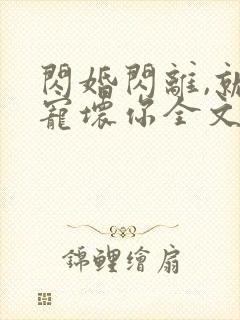 閃婚閃離,就
寵壞你全文
錦鯉繪扇